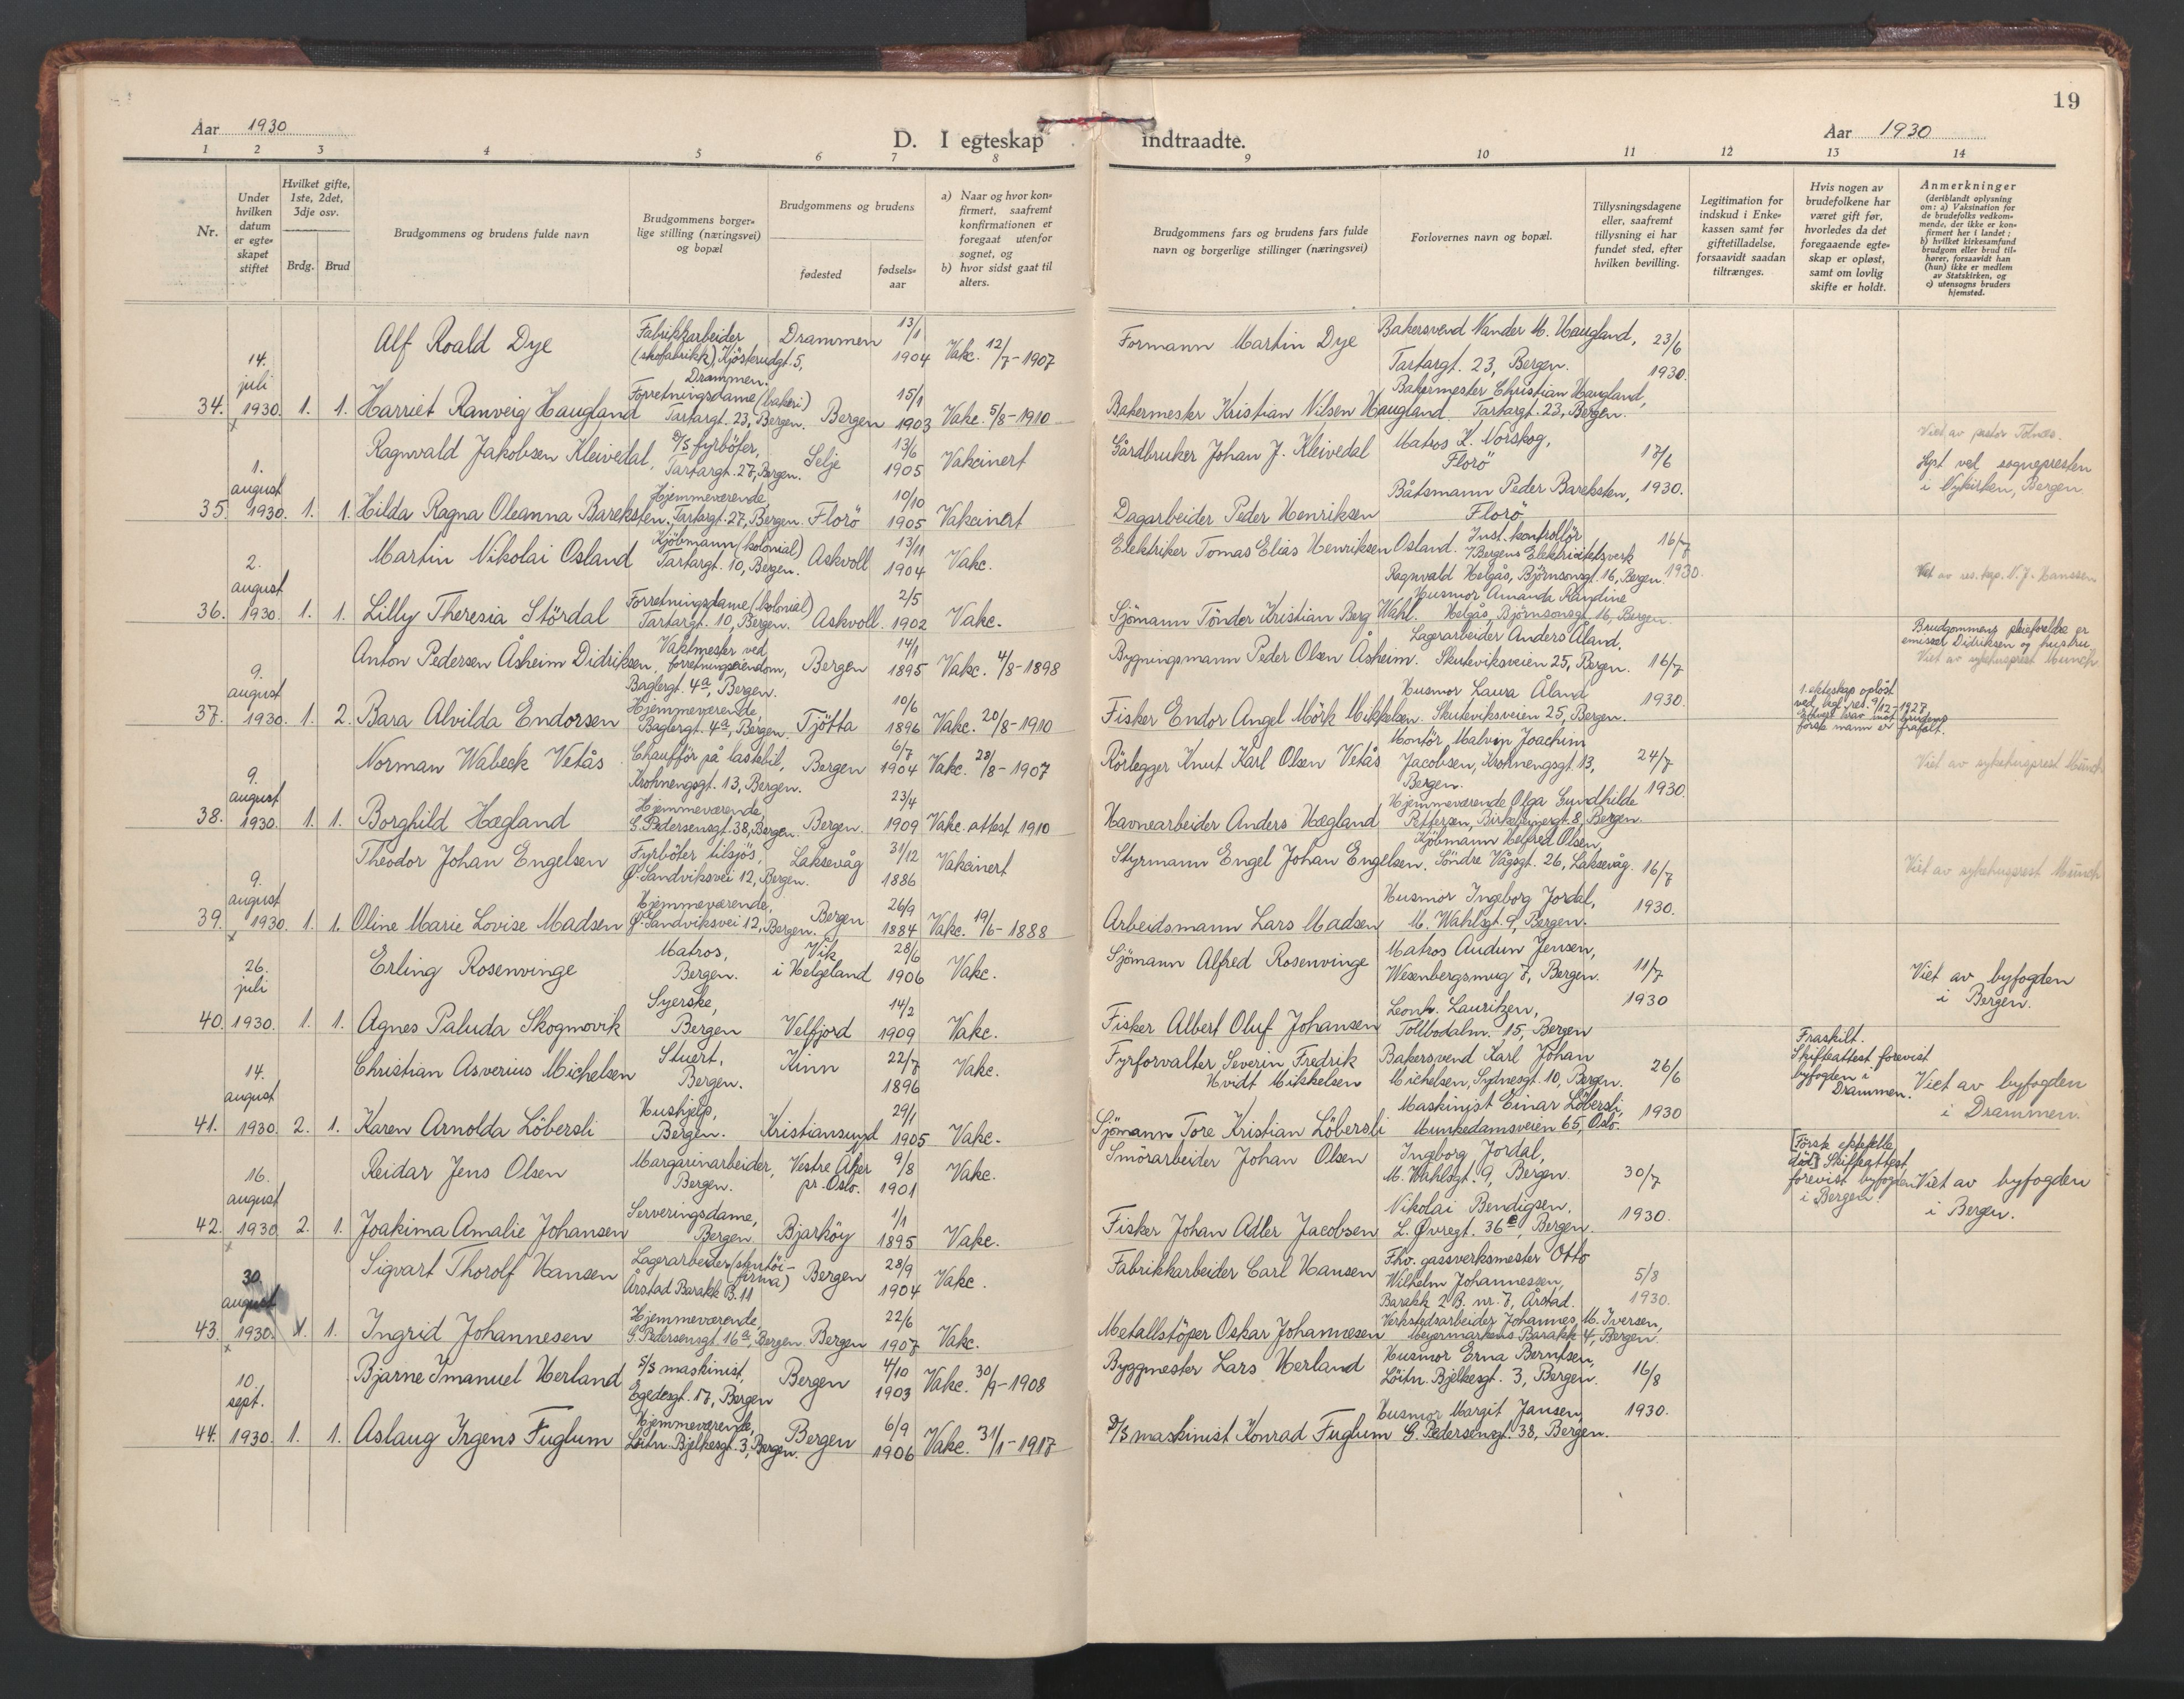 19
Aar 1930
D. I egteskap indtraadte.
Aar 1930
1 2 3 4 5 6 7 8 9 10 11 12 13 14
Nr.
Under hvilken datum er egteskapet stiftet
Hvilket gifte, 1ste, 2det, 3dje osv.
Brdg. Brud
Brudgommens og brudens fulde navn
Brudgommens borgerlige stilling (næringsvei) og bopæl
Brudgommens og brudens
fødested
fødselsaar
a) Naar og hvor konfirmert, saafremt konfirmationen er foregaat utenfor sognet, og
b) hvor sidst gaat til alters.
Brudgommens fars og brudens fars fulde navn og borgerlige stillinger (næringsvei)
Forlovernes navn og bopæl.
Tillysningsdagene eller, saafremt tillysning ei har fundet sted, efter hvilken bevilling.
Legitimation for indskud i Enkekassen samt før giftetilladelse, forsaavidt saadan tiltrænges.
Hvis nogen av brudefolkene har været gift før, hvorledes da det foregaaende egteskap er opløst, samt om lovlig skifte er holdt.
Anmerkninger (deriblandt oplysning om: a) Vaksination for de brudefolks vedkommende, der ikke er konfirmert her i landet; b) hvilket kirkesamfund brudgom eller brud tilhører, forsaavidt han (hun) ikke er medlem av Statskirken, og c) utensogns bruders hjemsted.
34. 14. juli 1930. 1. 1.
Alf Roald Dye
Fabrikkarbeider (skofabrikk), Kjösterudgt. 5, Drammen.
Drammen 13/1 1904 Vakc. 12/7-1907
Formann Martin Dye
Bakersvend Nander M. Haugland, Tartargt. 23, Bergen.
23/6 1930.
Harriet Ranveig Haugland
Forretningsdame (bakeri) Tartargt. 23, Bergen.
Bergen 15/1 1903 Vakc. 5/8-1910
Bakermester Kristian Nilsen Haugland
Bakermester Christian Haugland, Tartargt. 23, Bergen.
35. 1. august 1930. 1. 1.
Ragnvald Jakobsen Kleivedal,
D/S fyrböter, Tartargt. 27, Bergen.
Selje 13/6 1905 Vakcinert
Gårdbruker Johan J. Kleivedal
Matros K. Norskog, Florö
17/6 1930.
Viet av pastor Tolnæs.
Lyst ved sognepresten i Nykirken, Bergen
Hilda Ragna Oleanna Bareksten.
Hjemmeværende, Tartargt. 27, Bergen.
Florö 10/10 1905 Vakcinert
Dagarbeider Peder Henriksen
Båtsmann Peder Bareksten, Florö
36. 2. august 1930. 1. 1.
Martin Nikolai Osland
Kjöbmann (kolonial) Tartargt. 10, Bergen.
Askvoll 13/11 1904 Vakc.
Elektriker Tomas Elias Henriksen Osland.
Inst. kontrollör i Bergens Elektricitetsverk Ragnvald Helgås, Björnsonsgt. 16, Bergen.
16/7 1930.
Viet av res. kap. N. J. Hanssen
Lilly Theresia Stördal
Forretningsdame (kolonial) Tartargt. 10, Bergen.
Askvoll. 2/5 1902 Vakc.
Sjömann Tönder Kristian Berg Wahl.
Husmor Amanda Randine Helgås, Björnsonsgt. 16, Bergen.
37. 9. august 1930. 1. 2.
Anton Pedersen Åsheim Didriksen.
Vaktmester ved forretningseiendom, Baglergt. 4a, Bergen.
Bergen 14/1 1895 Vakc. 4/8-1898
Bygningsmann Peder Olsen Åsheim.
Lagerarbeider Anders Åland, Skuteviksveien 25, Bergen.
16/7 1930.
Brudgommens pleieforeldre er emissær Didriksen og hustru
Viet av sykehusprest Munch.
Bara Alvilda Endorsen
Hjemmeværende, Baglergt. 4a, Bergen.
Tjötta 10/6 1896 Vakc. 20/8-1910
Fisker Endor Angel Mörk Mikkelsen.
Husmor Laura Åland Skuteviksveien 25, Bergen.
1. ekteskap oplöst ved kgl. res. 9/12-1927. Ethvert krav mot brudens förste mann er frafalt.
38. 9. august 1930. 1. 1.
Norman Wabeck Vetås
Chaufför på lastebil, Krohnengsgt. 13, Bergen.
Bergen 6/7 1904 Vakc. 28/8-1907
Rörlegger Knut Karl Olsen Vetås
Montör Malvin Joachim Jacobsen, Krohnengsgt. 13, Bergen.
24/7 1930.
Viet av sykehusprest Munch
Borghild Hægland
Hjemmeværende, G. Pedersensgt. 38, Bergen.
Bergen. 23/4 1909 Vakc. attest 1910
Havnearbeider Anders Hægland
Hjemmeværende Olga Gundhilde Pettersen, Birkebeinergt. 8, Bergen.
39. 9. august 1930. 1. 1.
Theodor Johan Engelsen
Fyrböter tilsjös, Ø. Sandviksvei 12, Bergen.
Laksevåg 31/12 1886 Vakcinert
Styrmann Engel Johan Engelsen.
Kjöbmann Helfred Olsen, Söndre Vågsgt. 26, Laksevåg.
16/7 1930.
Viet av sykehusprest Munch
Oline Marie Lovise Madsen
Hjemmeværende, Ø. Sandviksvei 12, Bergen.
Bergen 26/9 1884 Vakc. 19/6-1888
Arbeidsmann Lars Madsen
Husmor Ingeborg Jordal, M. Wahlsgt. 9, Bergen.
40. 26. juli 1930. 1. 1.
Erling Rosenvinge
Matros, Bergen.
Vik i Helgeland 28/6 1906 Vakc.
Sjömann Alfred Rosenvinge
Matros Audun Jensen, Wesenbergsmug 7, Bergen.
11/7 1930
Viet av byfogden i Bergen.
Agnes Paluda Skogmovik
Syerske, Bergen
Velfjord 14/2 1909 Vakc.
Fisker Albert Oluf Johansen
Leonh. Lauritzen, Tollbodalm. 15, Bergen
41. 14. august 1930. 2. 1.
Christian Asverius Michelsen
Stuert, Bergen.
Kinn 22/7 1896 Vakc.
Fyrforvalter Severin Fredrik Hvidt Mikkelsen
Bakersvend Karl Johan Michelsen, Sydnesgt. 10, Bergen.
26/6 1930
Fraskilt. Skifteattest forevist byfogden i Drammen.
Viet av byfogden i Drammen.
Karen Arnolda Löbersli
Hushjelp, Bergen.
Kristiansund 29/1 1905 Vakc.
Sjömann Tore Kristian Löbersli
Maskinist Einar Löbersli, Munkedamsveien 65, Oslo.
42. 16. august 1930 2. 1.
Reidar Jens Olsen
Margarinarbeider, Bergen.
Vestre Aker pr. Oslo. 9/8 1901 Vakc.
Smörarbeider Johan Olsen
Ingeborg Jordal, M. Wahlsgt. 9, Bergen.
30/7 1930.
[Förste ektefelle död] Skifteattest forevist byfogden i Bergen.
Viet av byfogden i Bergen.
Joakima Amalie Johansen
Serveringsdame, Bergen
Bjarköy 1/1 1895 Vakc.
Fisker Johan Adler Jacobsen
Nikolai Bendigsen, L. Øvregt. 36, Bergen.
43. 30. august 1930. 1. 1.
Sigvart Thorolf Hansen
Lagerarbeider (skotöifirma) Årstad Barakk B. 11
Bergen 28/9 1904 Vakc.
Fabrikkarbeider Carl Hansen
Fhv. gassverksmester Otto Wilhelm Johannessen, Barakk 2 B. nr. 7, Årstad.
5/8 1930.
Ingrid Johannesen
Hjemmeværende, G. Pedersensgt. 16a, Bergen
Bergen 22/6 1907 Vakc.
Metallstöper Oskar Johannesen
Verkstedsarbeider Johannes M. Iversen, Meyermarkens Barakk 4, Bergen.
44. 10. sept. 1930. 1. 1.
Bjarne Imanuel Herland
S/S maskinist, Egedesgt. 17, Bergen
Bergen 4/10 1903 Vakc. 30/9-1908
Byggmester Lars Herland
Husmor Erna Berntsen, Löitn. Bjelkesgt. 3, Bergen.
16/8 1930.
Aslaug Irgens Fuglum
Hjemmeværende, Löitn. Bjelkesgt. 3, Bergen.
Bergen 6/9 1906 Vakc. 31/1-1917
D/S maskinist Konrad Fuglum
Husmor Margit Jansen, G. Pedersensgt. 38, Bergen.